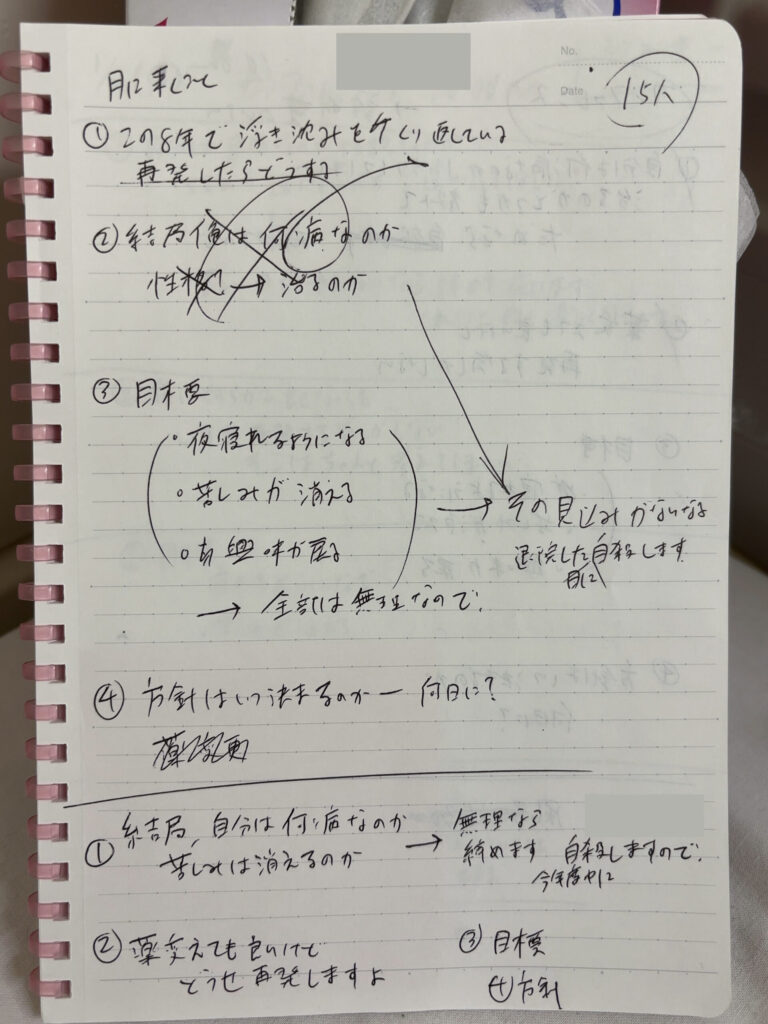 No.
Date
15人
① 208年で浮き沈みをくり返している
再発したらどうする
② 結局俺は何病なのか
性格 → 治るのか
③ 目標
・夜寝れるようになる
・苦しみが消える
・興味が戻る
→ その見込みがないなら
退院した自殺します
→ 全部は無理なので、
④ 方針はいつ決まるのか ー 何日に?
① 結局、自分は何病なのか
苦しみは消えるのか
→ 無理なら
諦めます 自殺しますので、
今年度中に
② 薬変えても良いけど
どうせ再発しますよ
③ 目標
④ 方針